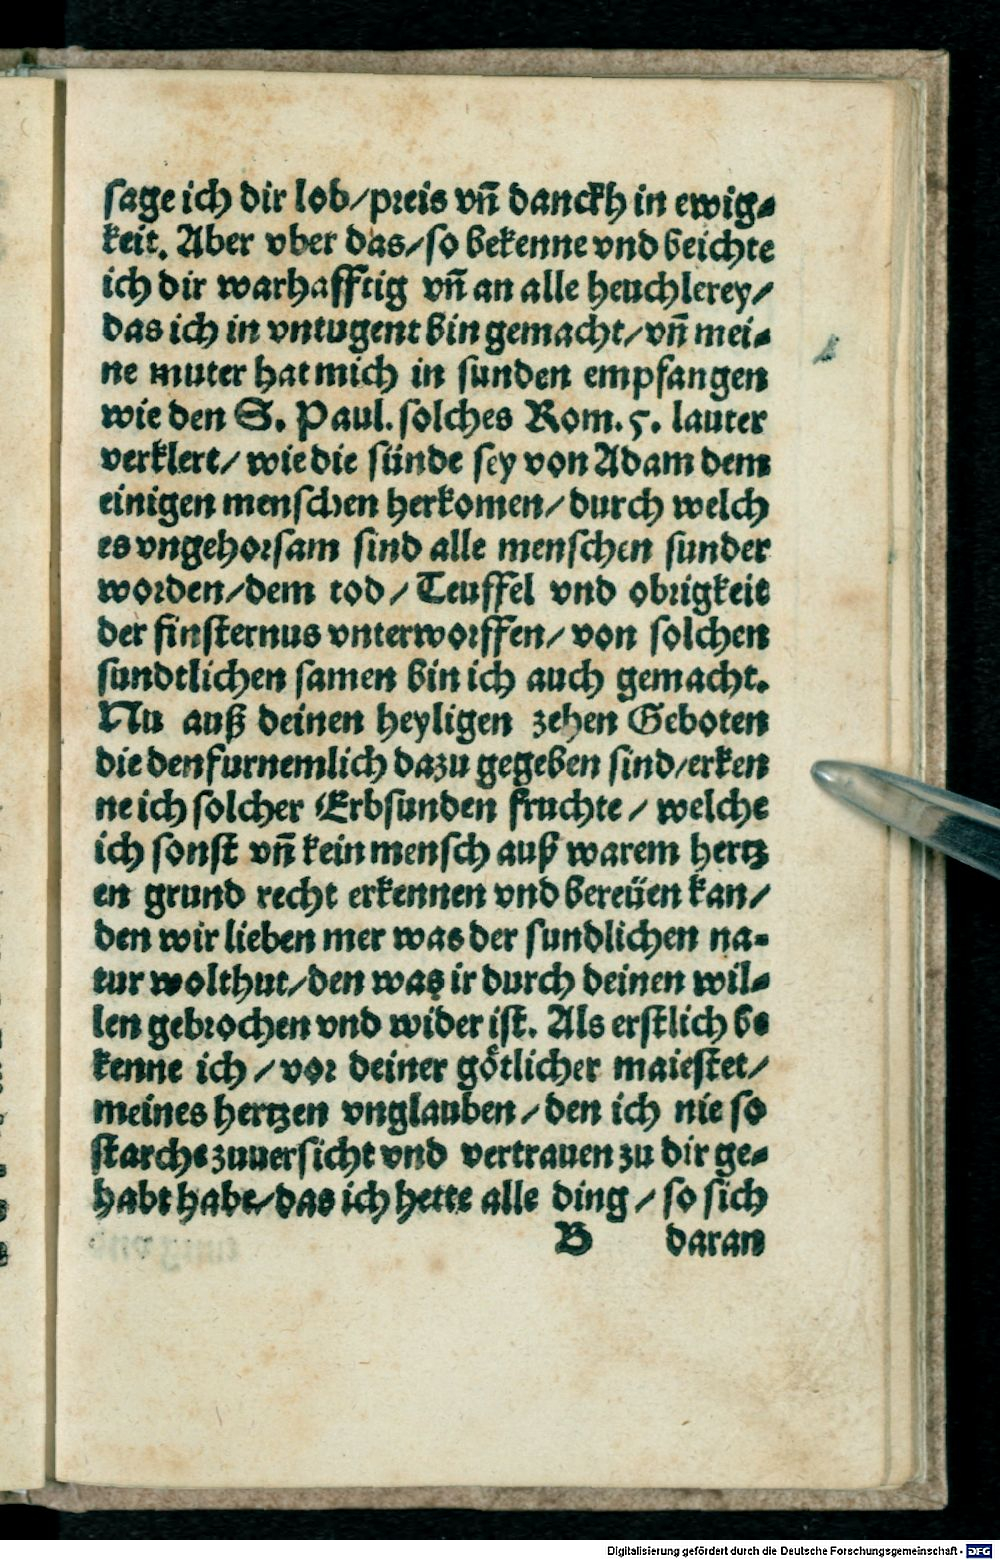 sage ich dir lob/preis vñ danckh in ewig⸗
keit. Aber vber das/so bekenne vnd beichte
ich dir warhafftig vñ an alle heuchlerey/
das ich in vntugent bin gemacht/vñ mei⸗
ne muter hat mich in sunden empfangen
wie den S. Paul. solches Rom. 5. lauter
verklert/ wie die sünde sey von Adam dem
einigen menschen herkomen/durch welch
es vngehorsam sind alle menschen sunder
worden/dem tod/Teuffel vnd obrigkeit
der finsternus vnterworffen/ von solchen
sundtlichen samen bin ich auch gemacht.
Nu auß deinen heyligen zehen Geboten
die den furnemlich dazu gegeben sind/erken
ne ich solcher Erbsunden fruchte/ welche
ich sonst vñ kein mensch auß warem hertz
en grund recht erkennen vnd bereüen kan/
den wir lieben mer was der sundlichen na⸗
tur wolthut/den was ir durch deinen wil⸗
len gebrochen vnd wider ist. Als erstlich be
kenne ich/vor deiner götlicher maiestet/
meines hertzen vnglauben/den ich nie so
starche zuuersicht vnd vertrauen zu dir ge⸗
habt habe/das ich hette alle ding/so sich
B daran
Digitalisierung gefördert durch die Deutsche Forschungsgemeinschaft - DFG